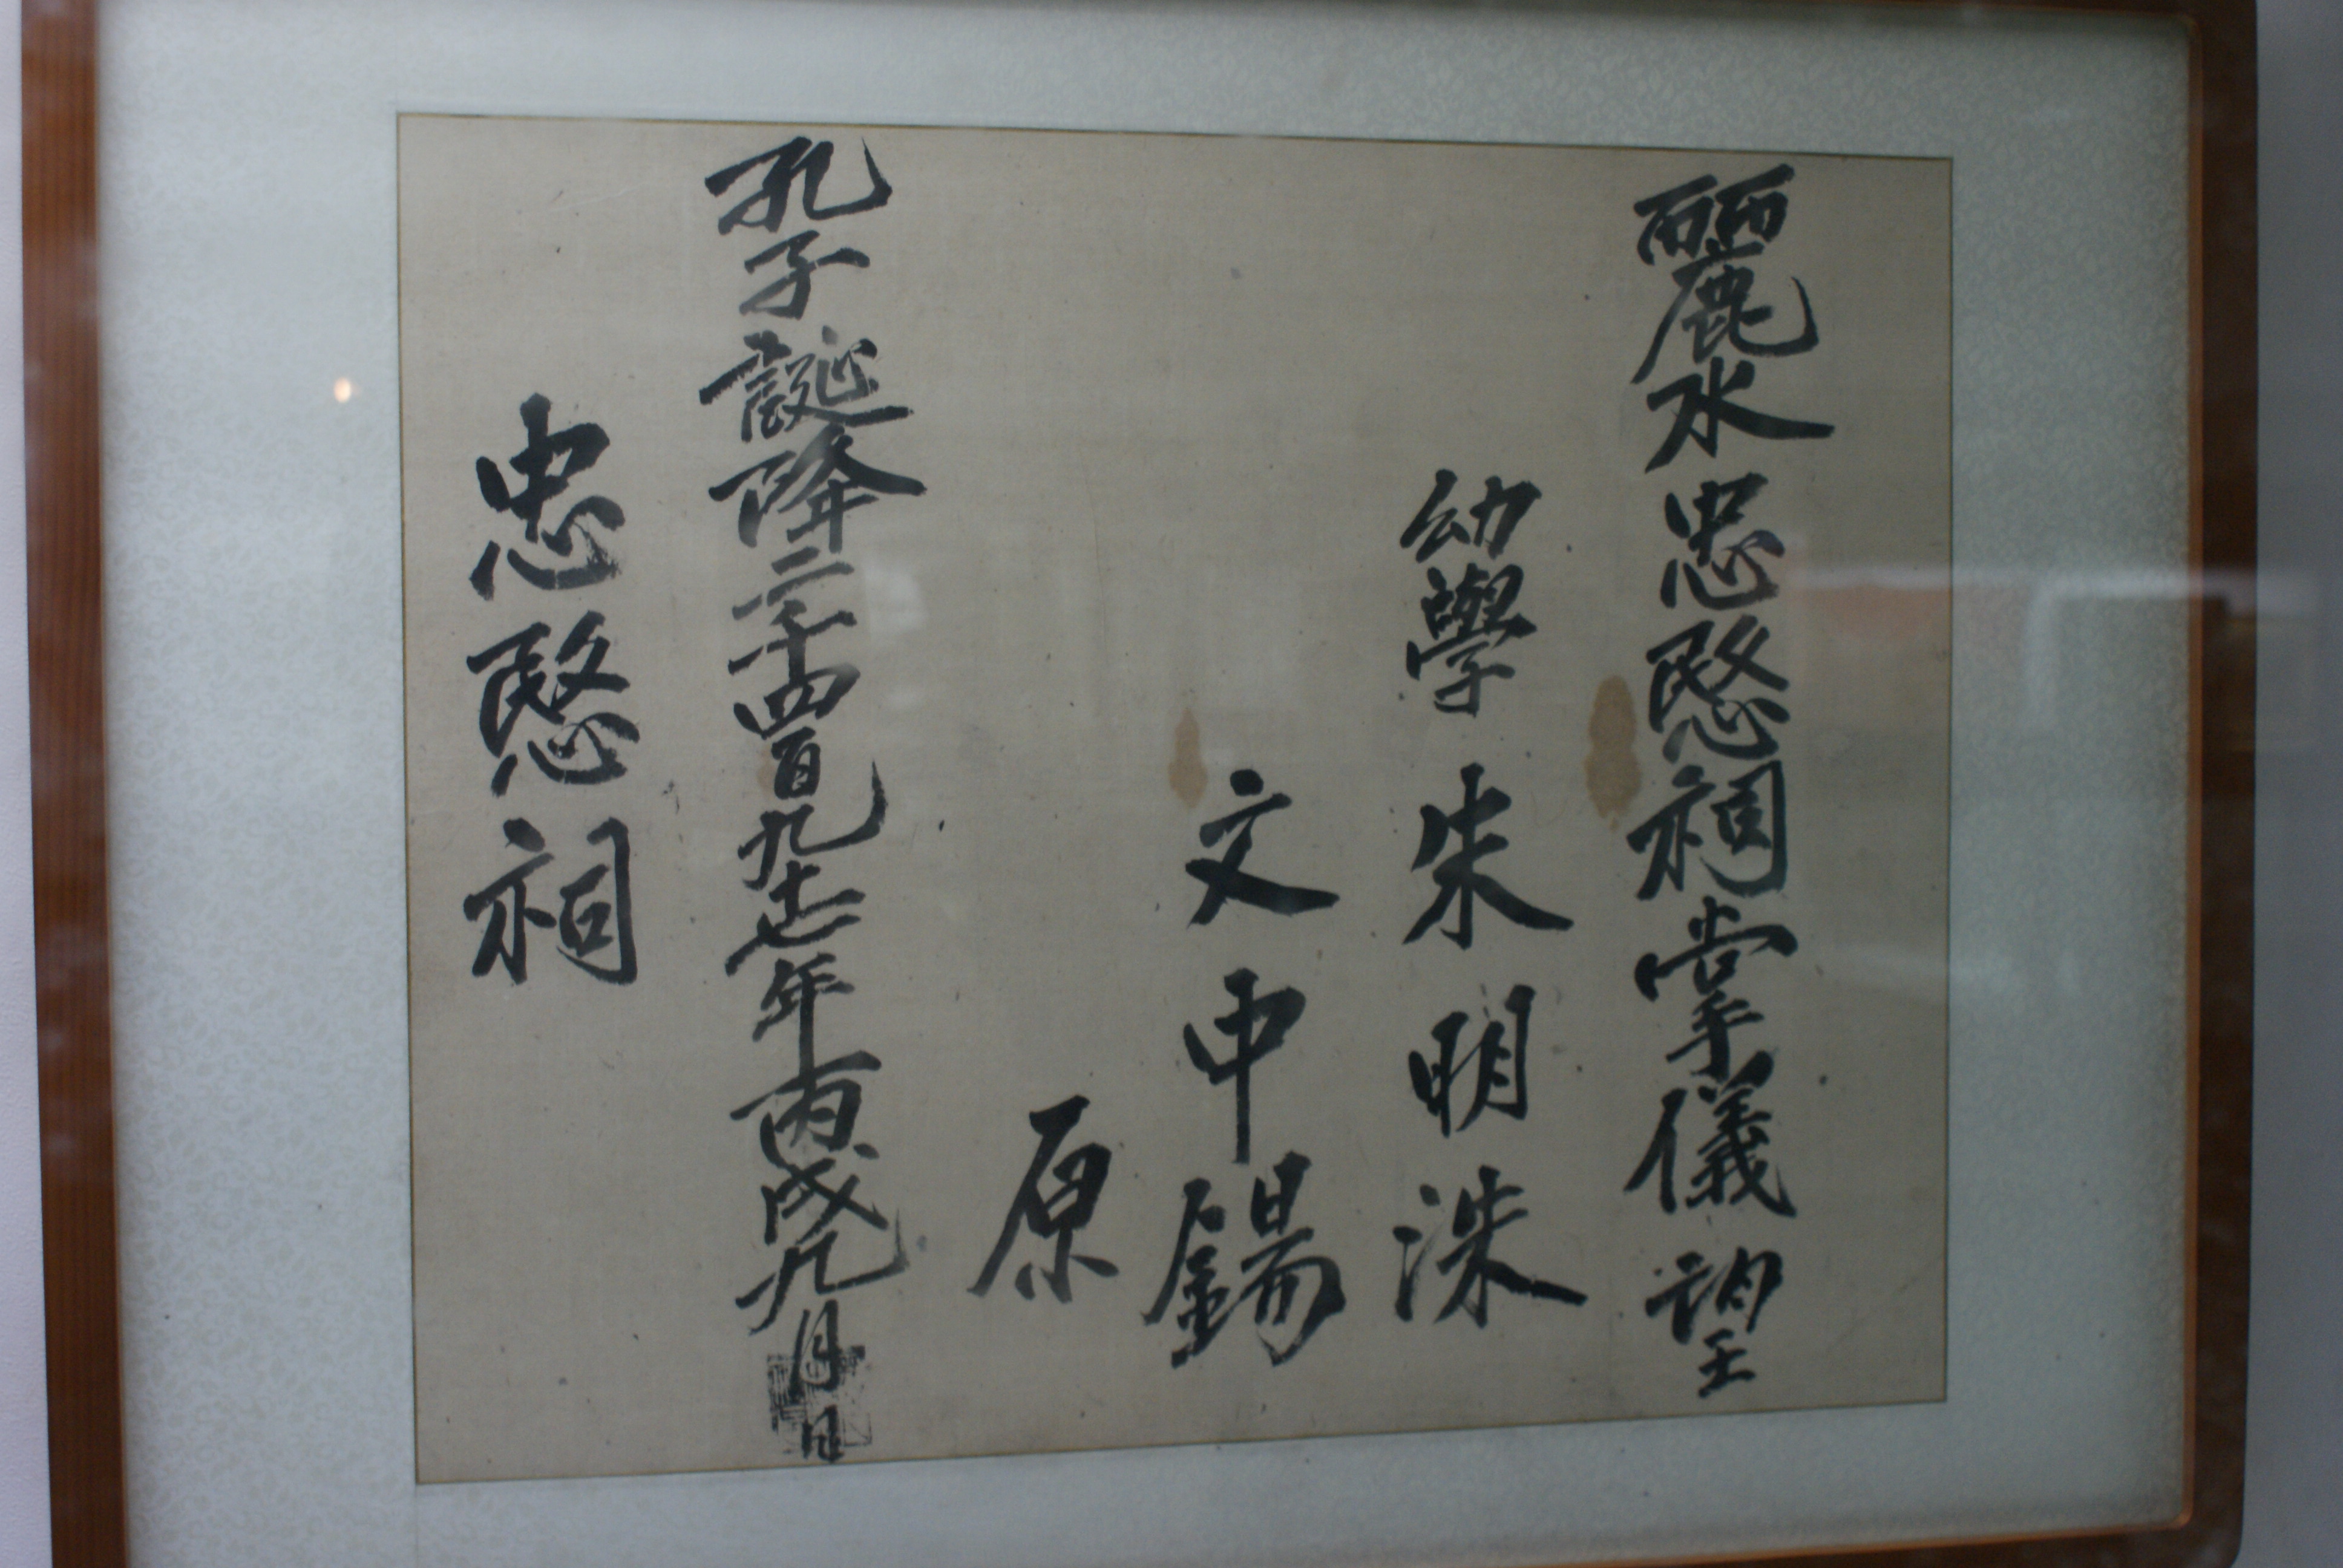 麗水忠愍祠掌儀望
幼學朱明洙
文申錫
原
孔子誕降二千四百九十七年丙戌九月 日
忠愍祠